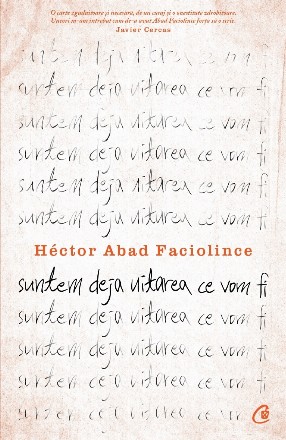 O carte zguduitoare și necesară, de un curaj și o sinceritate zdrobitoare.
Uneori m-am întrebat cum de-a avut Abad Faciolince forța să o scrie.
Javier Cercas
suntem deja uitarea ce vom fi
suntem deja uitarea ce vom fi
suntem deja uitarea ce vom fi
suntem deja uitarea ce vom fi
suntem deja uitarea ce vom fi
suntem deja uitarea ce vom fi
Héctor Abad Faciolince
suntem deja uitarea ce vom fi
suntem deja uitarea ce vom fi
suntem deja uitarea ce vom fi
suntem deja uitarea ce vom fi
suntem deja uitarea ce vom fi